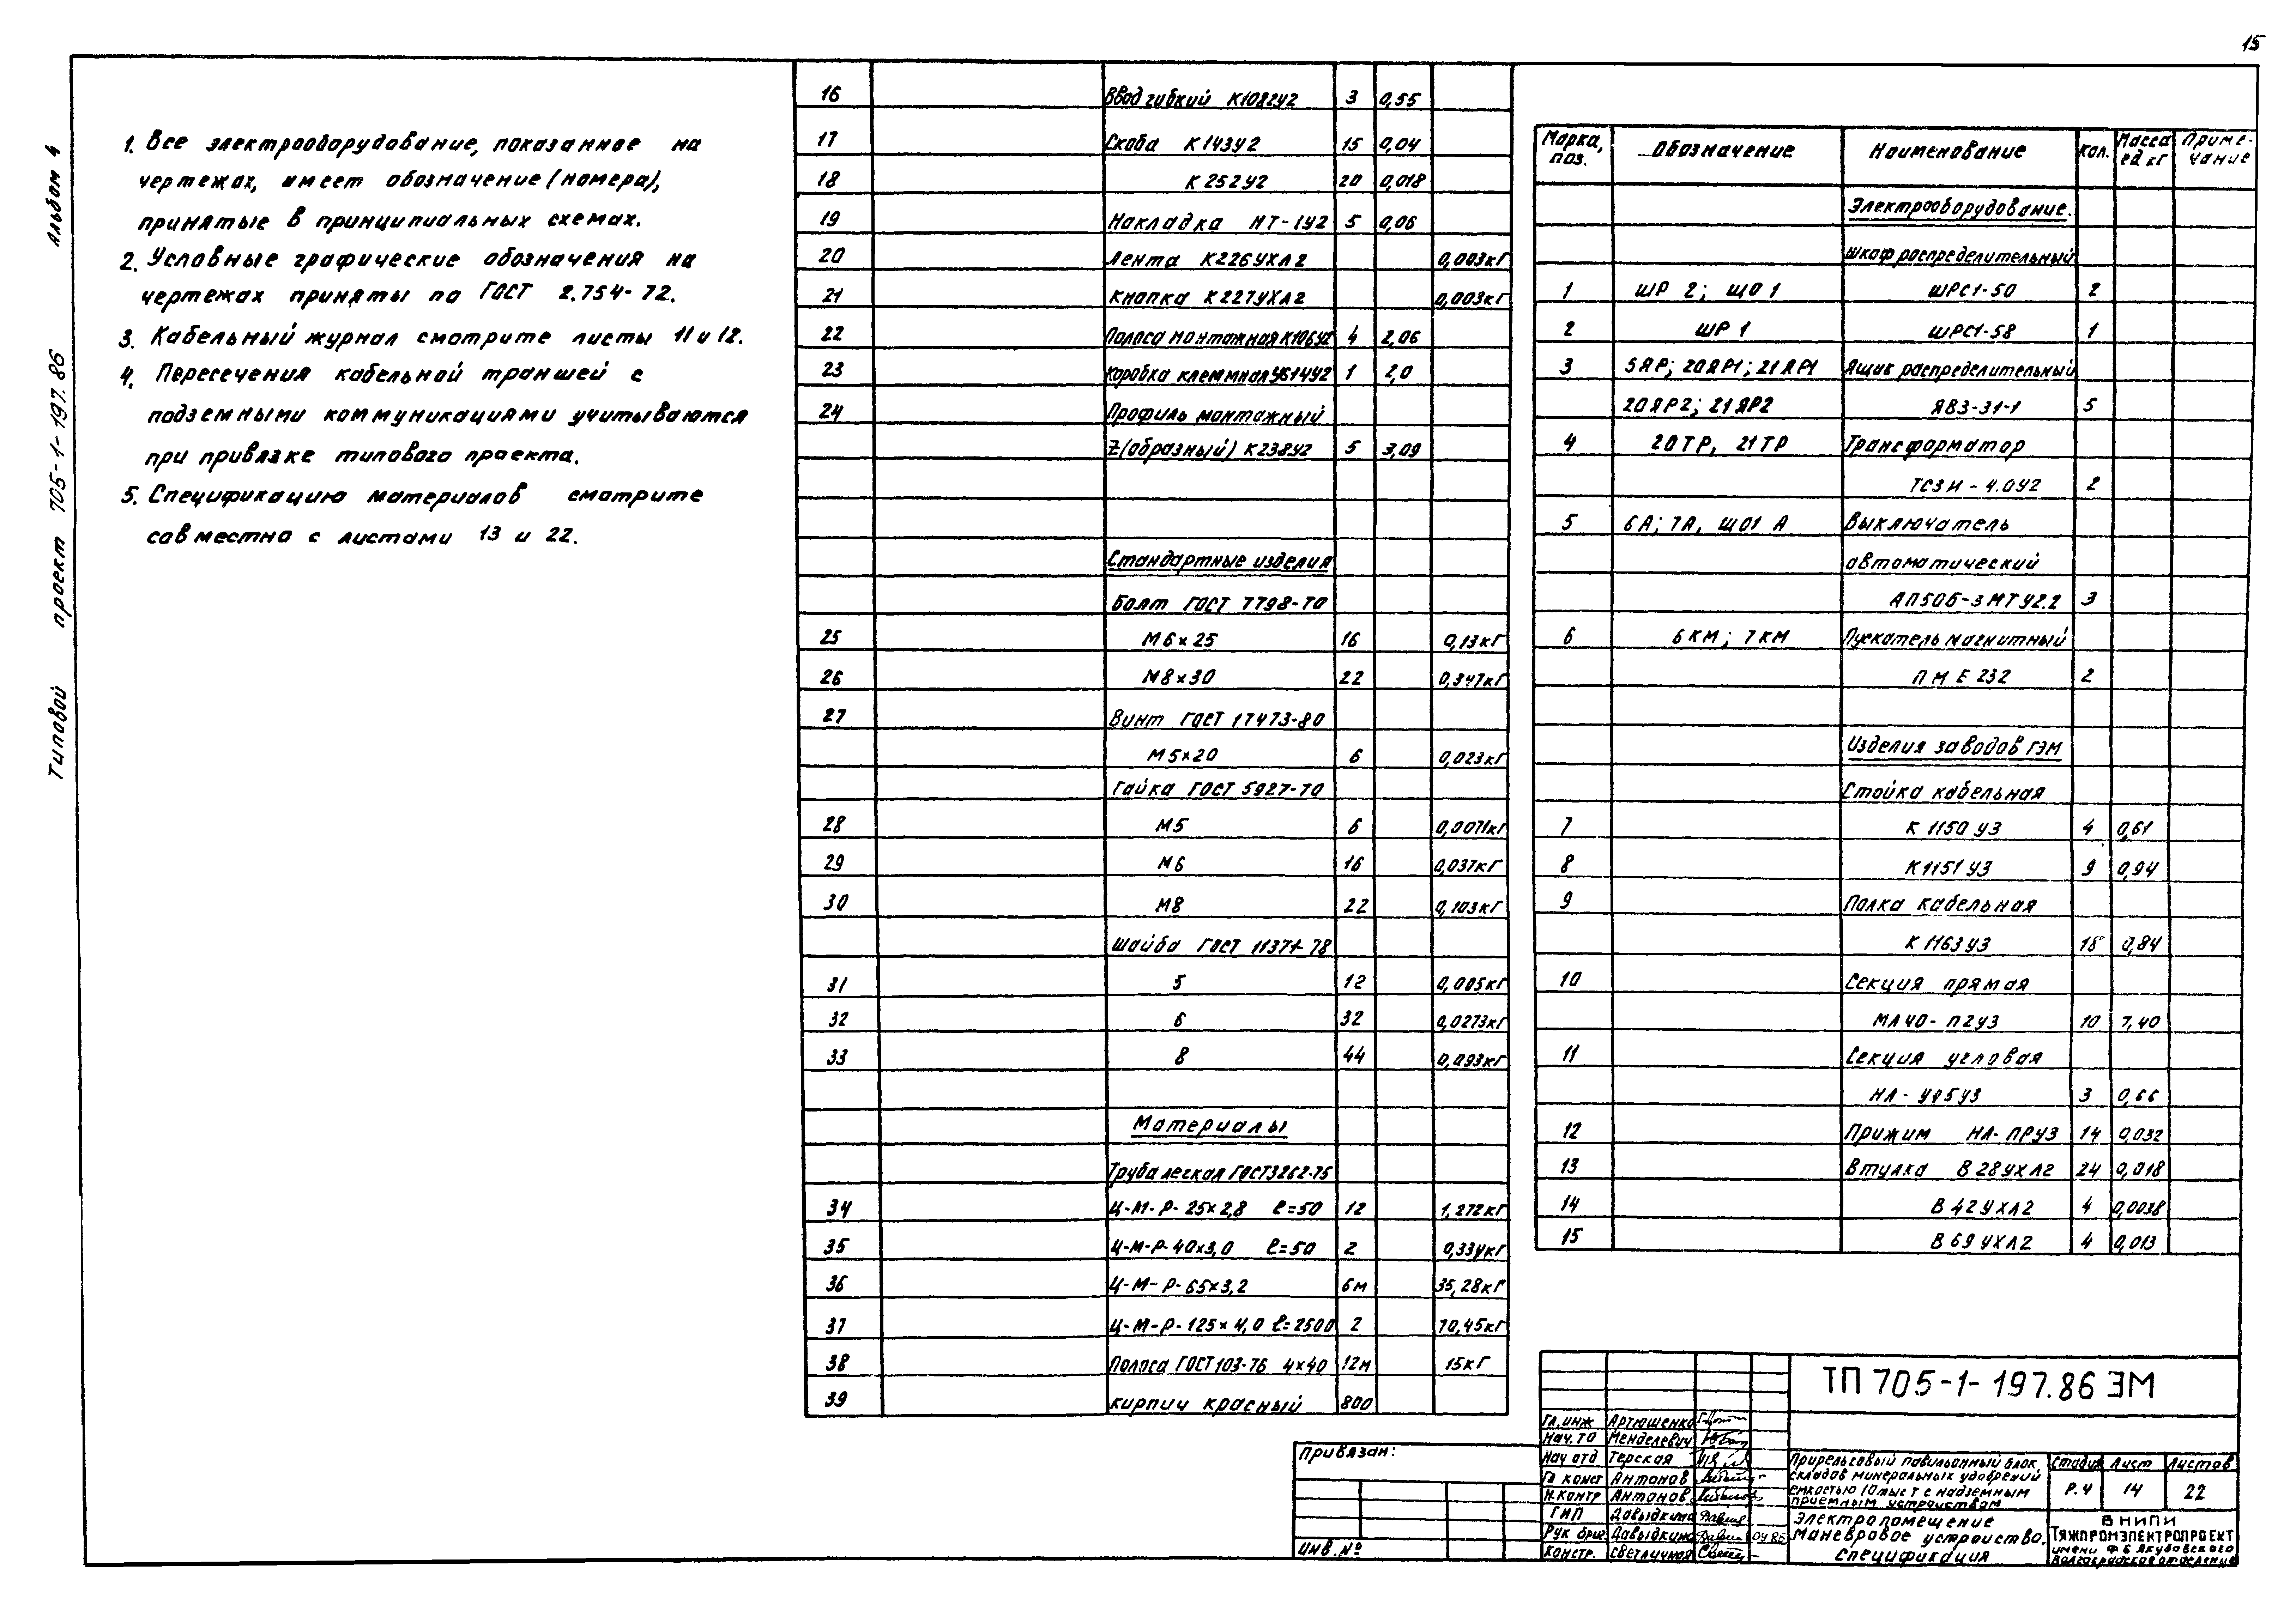 15
Типовой проект 705-1-197.86 Альбом 4
1. Все электрооборудование, показанное на
чертежах, имеет обозначение (номера),
принятые в принципиальных схемах.
2. Условные графические обозначения на
чертежах приняты по ГОСТ 2.754-72.
3. Кабельный журнал смотрите листы 11 и 12.
4. Пересечения кабельной траншей с
подземными коммуникациями учитываются
при привязке типового проекта.
5. Спецификацию материалов смотрите
совместно с листами 13 и 22.
16 Ввод гибкий К1082У2 3 0,55
17 Скоба К143У2 15 0,04
18 К252У2 20 0,018
19 Накладка НТ-1У2 5 0,06
20 Лента К226УХЛ2 0,003кг
21 Кнопка К227УХЛ2 0,003кг
22 Полоса монтажная К106У2 4 2,06
23 Коробка клеммная У614У2 1 2,0
24 Профиль монтажный
Z(образный) К238У2 5 3,09
Стандартные изделия
Болт ГОСТ 7798-70
25 М6×25 16 0,13кг
26 М8×30 22 0,347кг
27 Винт ГОСТ 17473-80
М5×20 6 0,023кг
Гайка ГОСТ 5927-70
28 М5 6 0,0071кг
29 М6 16 0,037кг
30 М8 22 0,103кг
Шайба ГОСТ 11371-78
31 5 12 0,005кг
32 6 32 0,0273кг
33 8 44 0,093кг
Материалы
Труба легкая ГОСТ3262-75
34 Ц-М-Р-25×2,8 ℓ=50 12 1,272кг
35 Ц-М-Р-40×3,0 ℓ=50 2 0,334кг
36 Ц-М-Р-65×3,2 6м 35,28кг
37 Ц-М-Р-125×4,0 ℓ=2500 2 70,45кг
38 Полоса ГОСТ103-76 4×40 12м 15кг
39 Кирпич красный 800
Марка, поз. Обозначение Наименование Кол. Масса ед кг Приме-чание
Электрооборудование.
Шкаф распределительный
1 ШР 2; ЩО 1 ШРС1-50 2
2 ШР 1 ШРС1-58 1
3 5ЯР; 20ЯР1; 21ЯР1 Ящик распределительный
20ЯР2; 21ЯР2 ЯВЗ-31-1 5
4 20ТР, 21ТР Трансформатор
ТСЗИ-4.0У2 2
5 6А; 7А, ЩО1 А Выключатель
автоматический
АП50Б-3МТУ2.2 3
6 6КМ; 7КМ Пускатель магнитный
ПМЕ 232 2
Изделия заводов ГЭМ
Стойка кабельная
7 К1150 У3 4 0,61
8 К1151 У3 9 0,94
9 Полка кабельная
К1163У3 18 0,84
10 Секция прямая
МЛ40-П2У3 10 7,40
11 Секция угловая
НЛ-У45У3 3 0,66
12 Прижим НЛ-ПРУ3 14 0,032
13 Втулка В28УХЛ2 24 0,018
14 В42УХЛ2 4 0,0038
15 В69УХЛ2 4 0,013
ТП 705-1-197.86 ЭМ
Привязан:
Инв.№
Гл.инж Артюшенко
Нач.ТО Менделевич
Нач отд Терская
Гл конст Антонов
Н.контр Антонов
ГИП Давыдкина
Рук бриг Давыдкина
Констр. Светличная
Прирельсовый павильонный блок
складов минеральных удобрений
емкостью 10тыс т с надземным
приемным устройством
Стадия Лист Листов
Р.Ч 14 22
Электропомещение
Маневровое устройство.
Спецификация
ВНИПИ
Тяжпромэлектропроект
имени Ф Б Якубовского
Волгоградское отделение